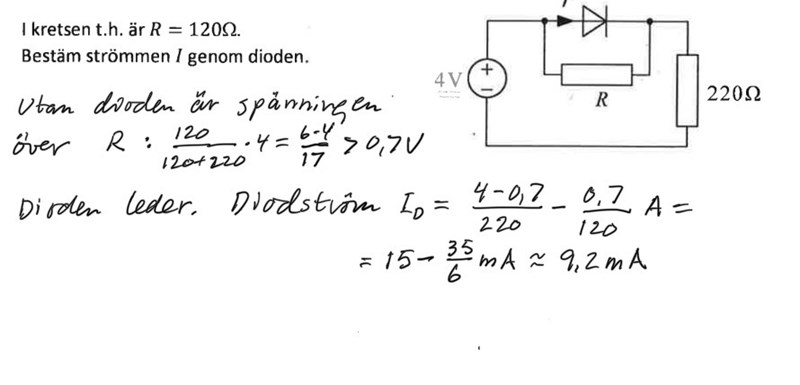 I kretsen t.h. är R = 120Ω.
Bestäm strömmen I genom dioden.
4V
+
−
R
220Ω
Utan dioden är spänningen
över R : 120/(120+220) · 4 = 6·4/17 > 0,7V
Dioden leder. Diodström I_D = (4−0,7)/220 − 0,7/120 A =
= 15 − 35/6 mA ≈ 9,2mA